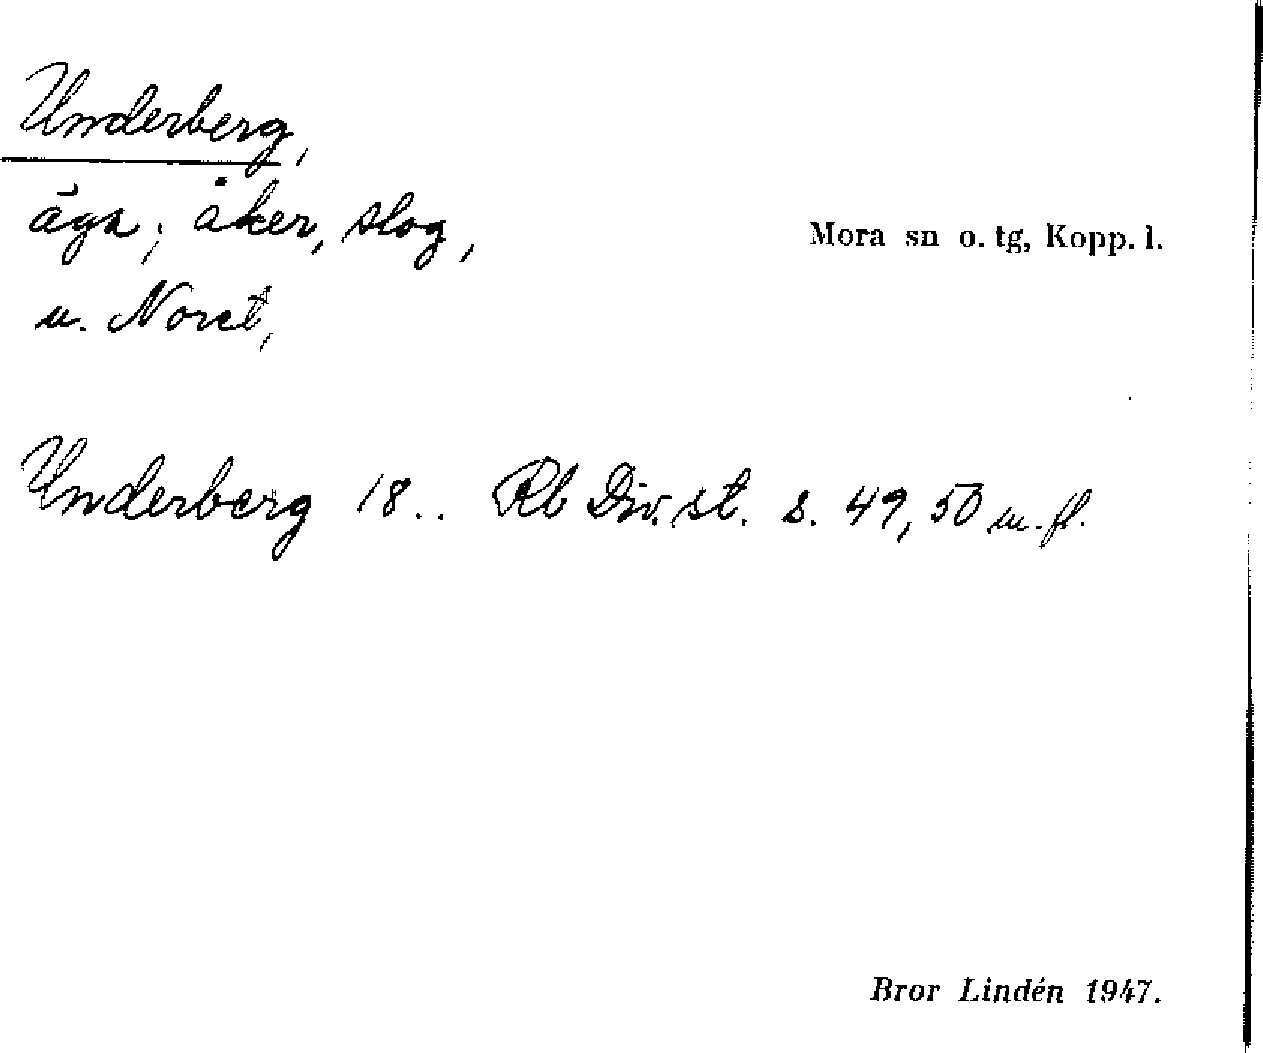 Underberg,
äga; åker, slog,
Mora sn o. tg, Kopp. l.
u. Noret,
Underberg 18.. Rb Div. st. s. 49, 50 m. fl.
Bror Lindén 1947.